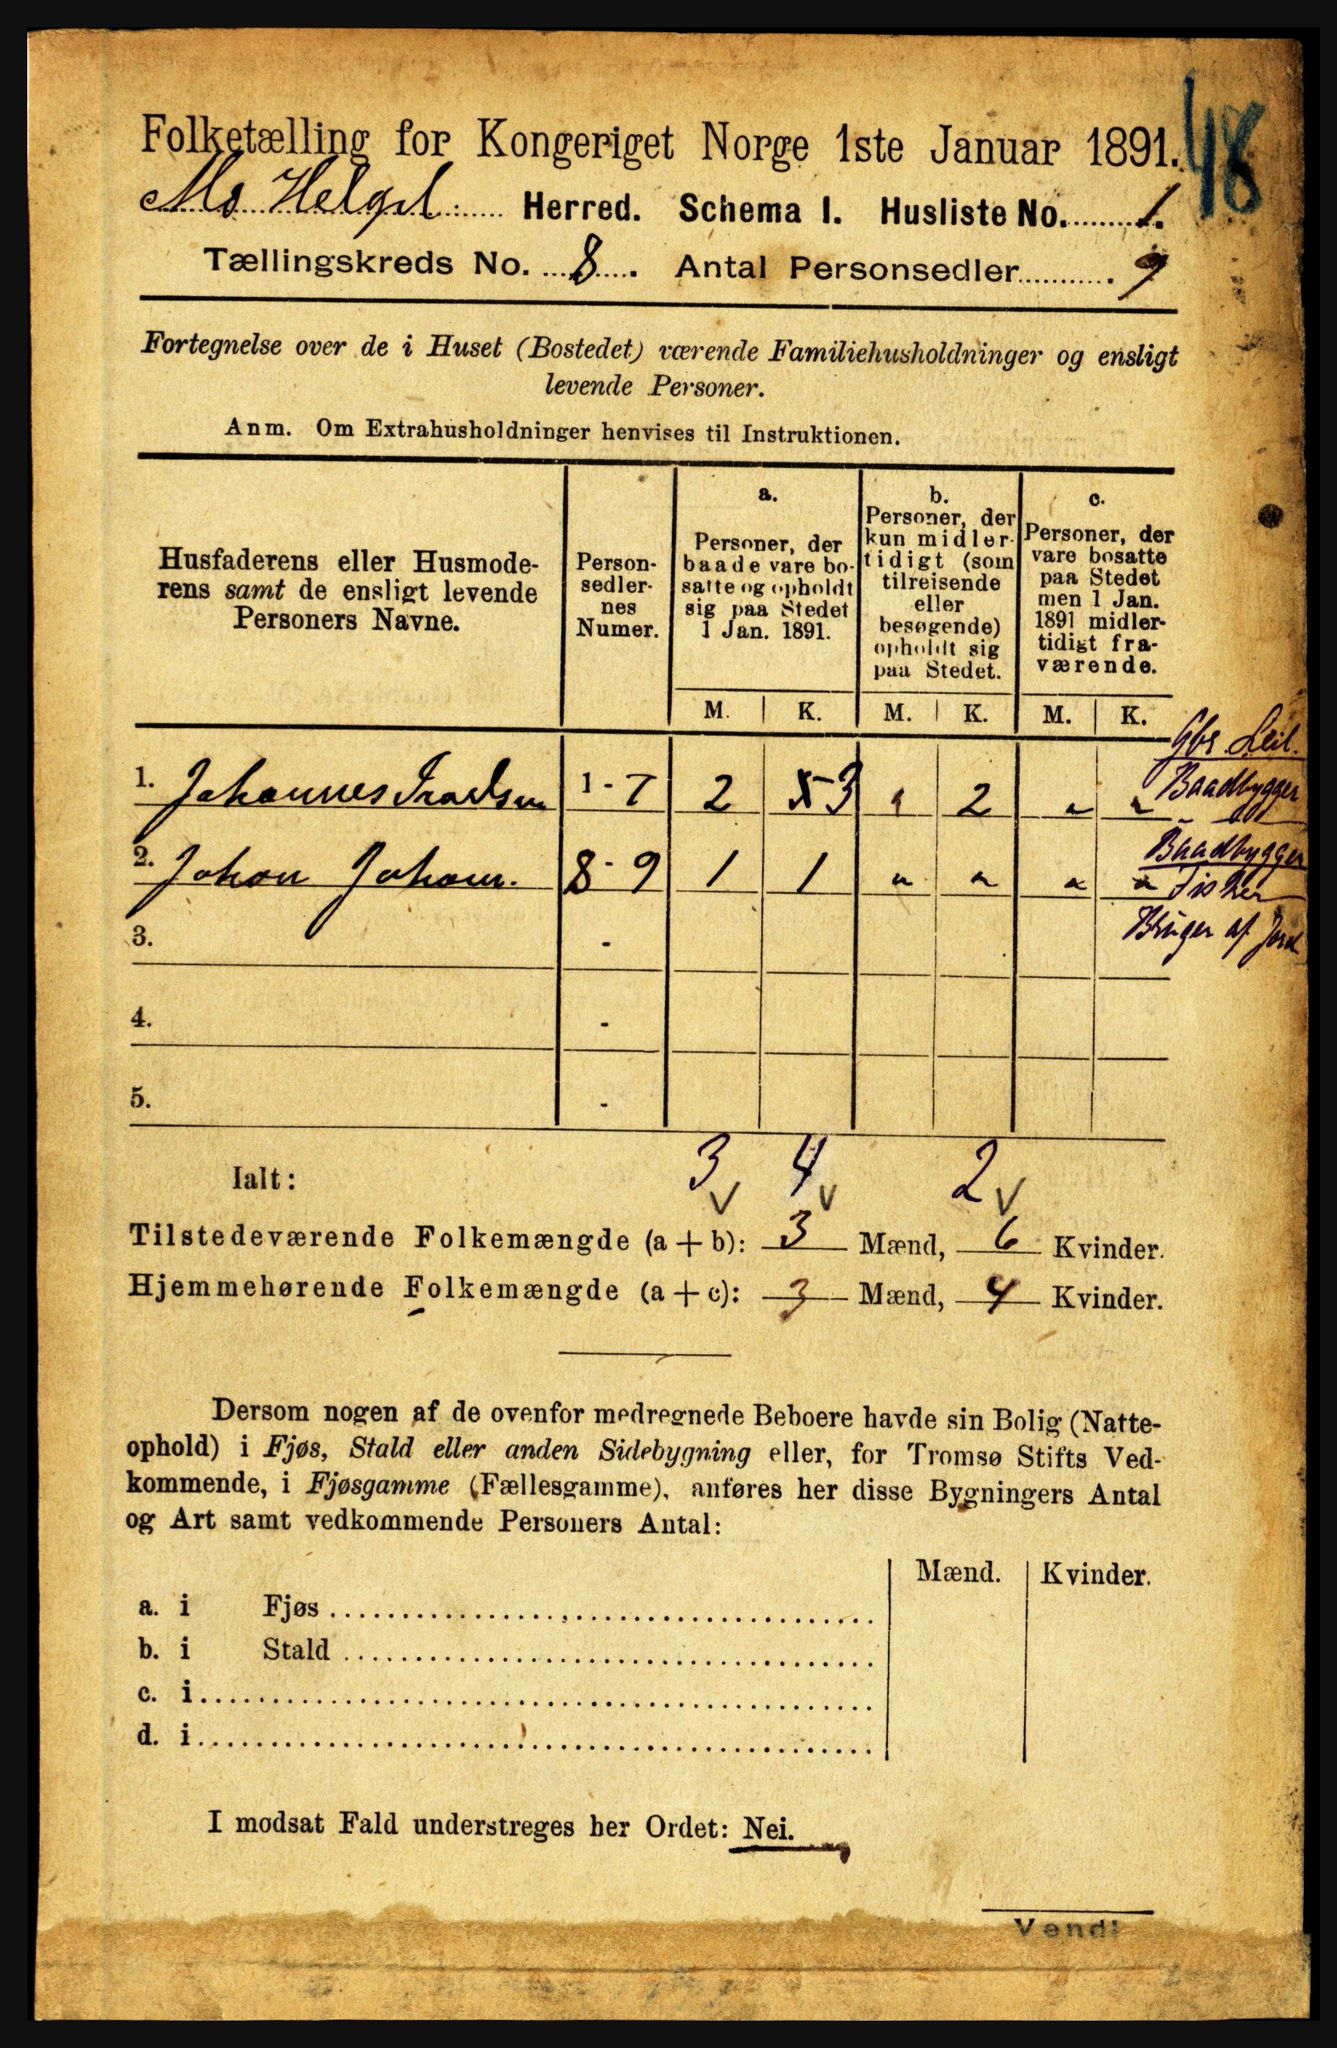 48
Folketælling for Kongeriget Norge 1ste Januar 1891.
Mo Helgel. Herred. Schema I. Husliste No. 1.
Tællingskreds No. 8. Antal Personsedler 9
Fortegnelse over de i Huset (Bostedet) værende Familiehusholdninger og ensligt
levende Personer.
Anm. Om Extrahusholdninger henvises til Instruktionen.
Husfaderens eller Husmode-
rens samt de ensligt levende
Personers Navne.
Person-
sedler-
nes
Numer.
a.
Personer, der
baade vare bo-
satte og opholdt
sig paa Stedet
1 Jan. 1891.
b.
Personer, der
kun midler-
tidigt (som
tilreisende
eller
besøgende)
opholdt sig
paa Stedet.
c.
Personer, der
vare bosatte
paa Stedet
men 1 Jan.
1891 midler-
tidigt fra-
værende.
M. K. M. K. M. K.
Gbr Leil.
Baadbygger
1. Johannes 1 - 7 2 5 3 " 2 " "
Baadbygger
2. Johan Johans. 8 - 9 1 1 " " " " Fisker
Bruger af Jord
3. -
4. -
5. -
Ialt: 3 4 2
Tilstedeværende Folkemængde (a + b): 3 Mænd, 6 Kvinder.
Hjemmehørende Folkemængde (a + c): 3 Mænd, 4 Kvinder.
Dersom nogen af de ovenfor medregnede Beboere havde sin Bolig (Natte-
ophold) i Fjøs, Stald eller anden Sidebygning eller, for Tromsø Stifts Ved-
kommende, i Fjøsgamme (Fællesgamme), anføres her disse Bygningers Antal
og Art samt vedkommende Personers Antal:
Mænd. Kvinder.
a. i Fjøs
b. i Stald
c. i
d. i
I modsat Fald understreges her Ordet: Nei.
Vend!